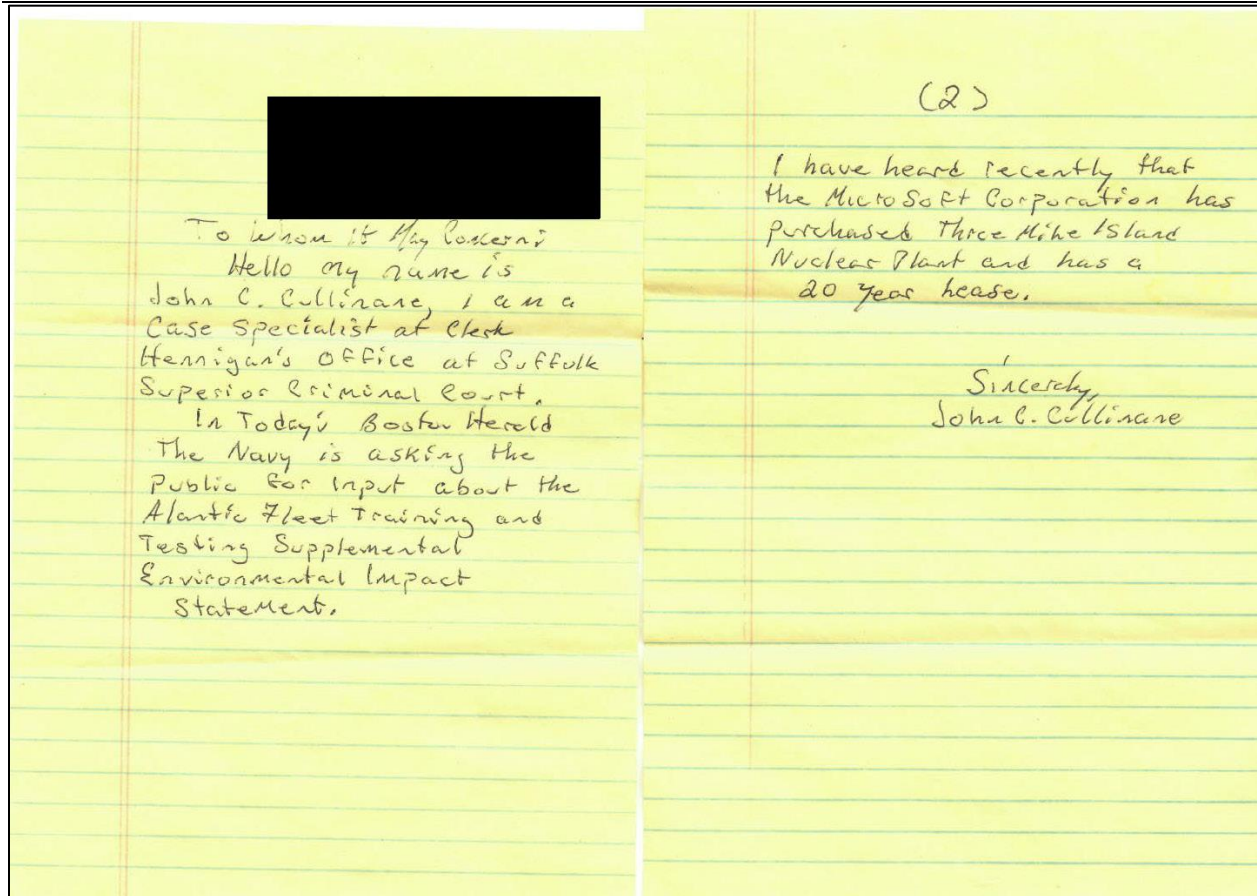 To Whom it May Concern:
Hello my name is
John C. Cullinane, I am a
Case Specialist at Clerk
Hennigan's Office at Suffolk
Superior Criminal Court.
In Today's Boston Herald
The Navy is asking the
Public for input about the
Alantic Fleet Training and
Testing Supplemental
Environmental Impact
Statement.
(2)
I have heard recently that
the MicroSoft Corporation has
purchased Three Mile Island
Nuclear Plant and has a
20 year lease.
Sincerely,
John C. Cullinane